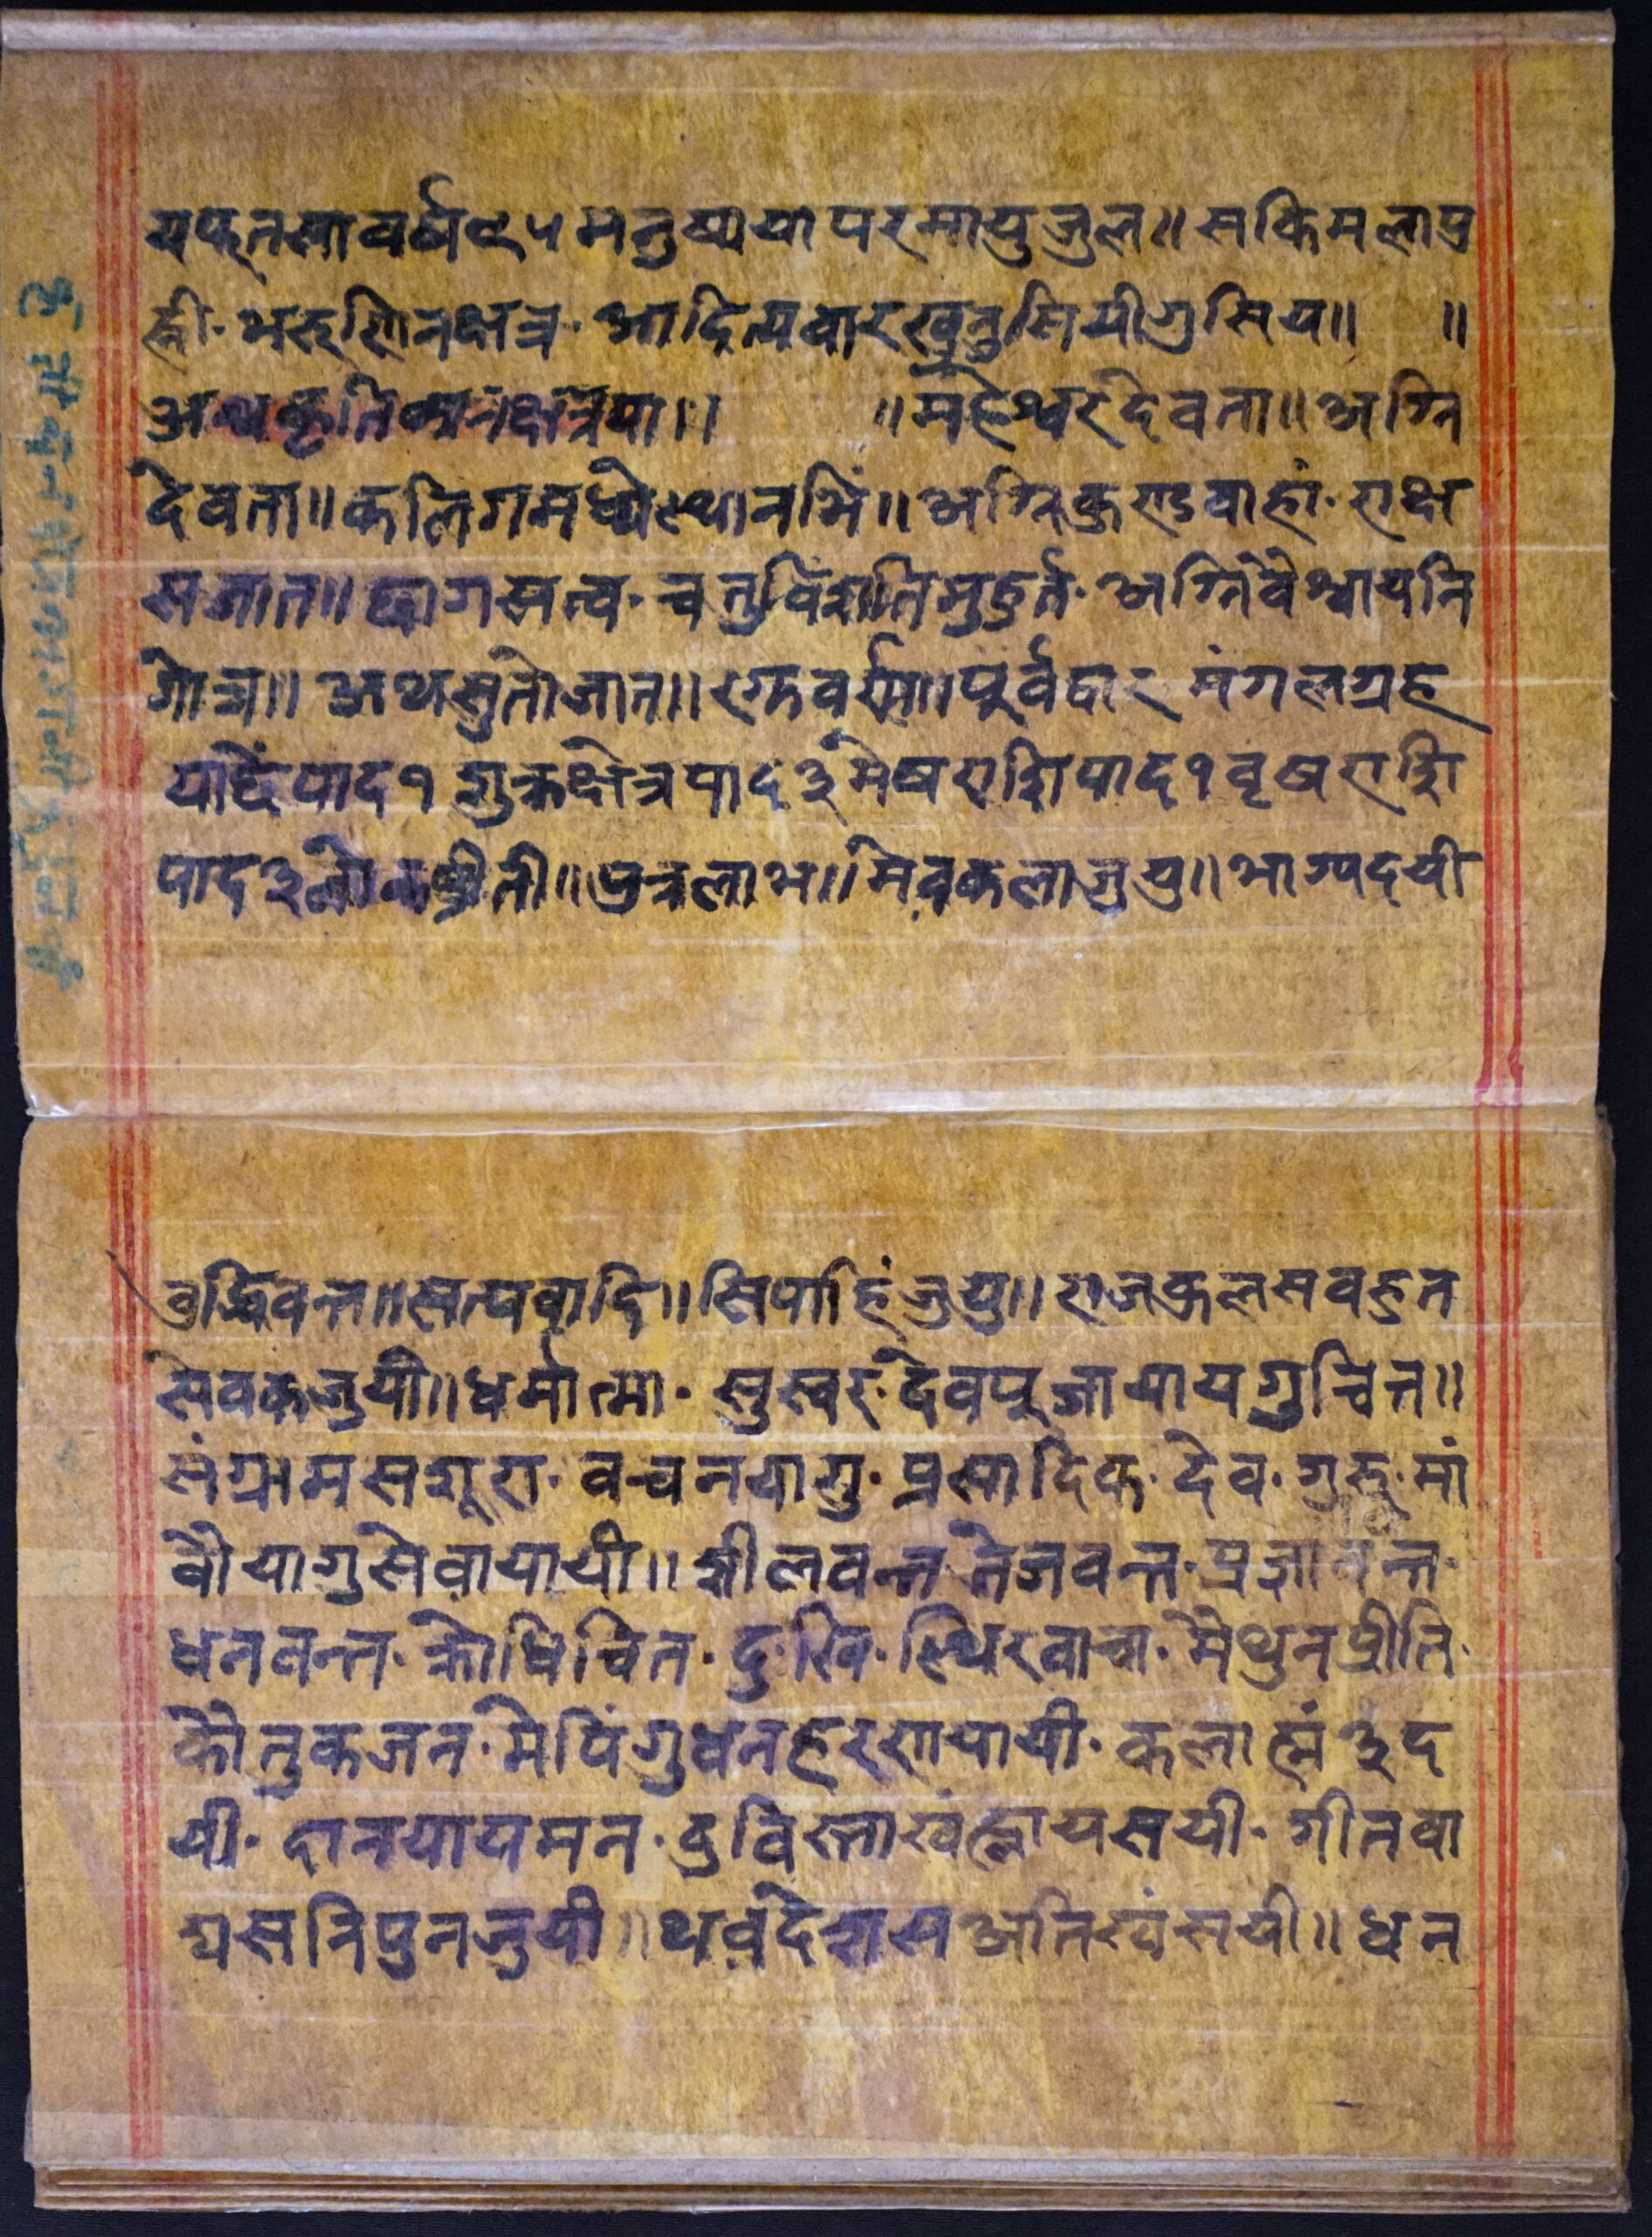 यफुतसा वर्ष ९५ मनुष्यया परमायु जुल॥ सकिमलापु
ह्नी॰ भरुणिनक्षत्र॰ आदित्यवार खुनु सियीगु सिय॥ ॥
अथ कृतिकानक्षत्रया॥ ॥महेश्वरदेवता॥ अग्नि
देवता॥ कलिगमध्येस्थानभिं॥ अग्निकुराडवाहां॰ राक्ष
सजात॥ छागसत्व॰ चतुर्विंशतिमुहुर्त॰ अग्निवैश्वायनि
गोत्र॥ अथसुतोजात॥ रक्तवर्सा॥ पूर्वद्वार मंगलग्रह
पाद १ शुक्रक्षेत्र पाद ३ मेषराशि पाद १ वृषराशि
पाद ३ ॥ पुत्रलाभ॥ मिवकलाजुयु॥ भाग्यदयी
बुद्धिवन्त॥ सत्यवादि॥ सिपाहिं जुयु॥ राजकुलस वहुत
सेवकजुयी॥ धर्मात्मा॰ सुस्वर॰ देवपूजायायगुचित्त॥
संग्रामस शूरा॰ वचनयागु॰ प्रसादिक॰ देव॰ गुरु॰ मां
वौयागु सेवायायी॥ शीलवन्त॰ तेजवन्त॰ प्रज्ञावन्त॰
धनवन्त॰ क्रोधिचित॰ दुःखि॰ स्थिरवाचा॰ मैथुनप्रीति॰
कौतुकजन॰ मेपिंगु धनहरसायायी॰ कलाह्मं ३ द
यी॰ दानयायमन॰ सयी॰ गीतवा
द्यस निपुनजुयी॥ थवदेशस अतिखंसयी॥ धन